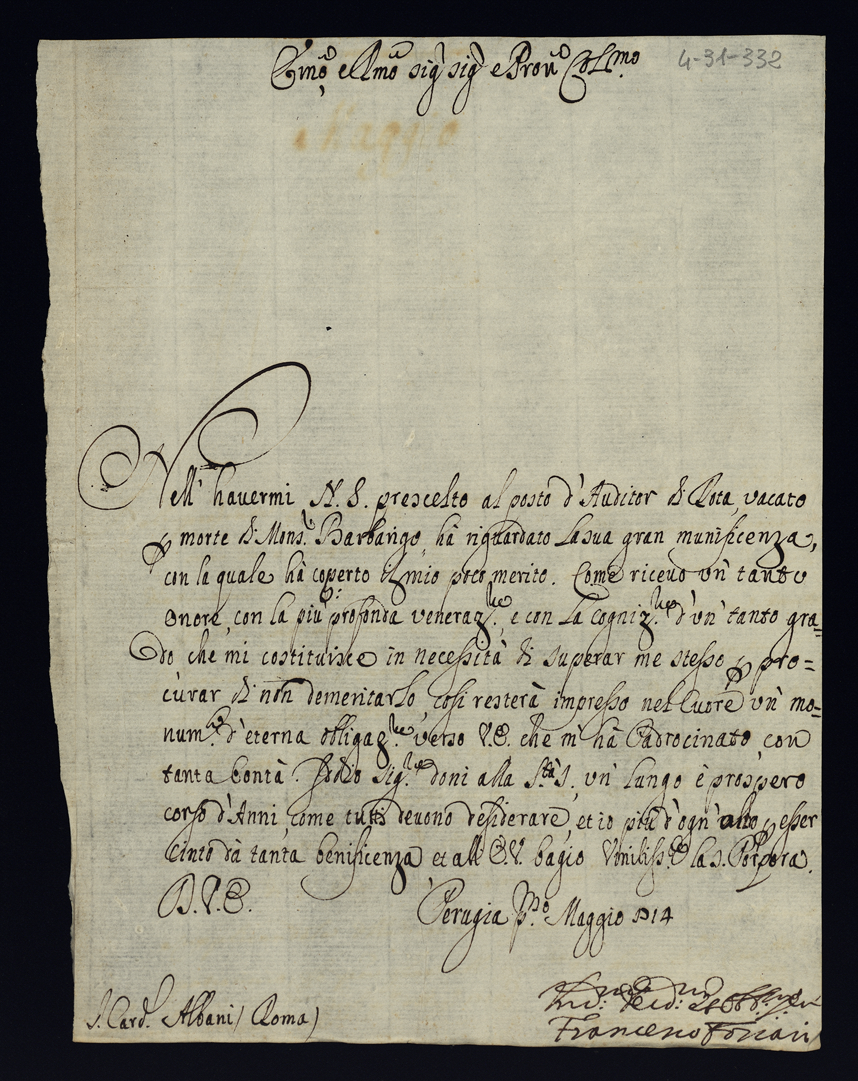 Emo e Rmo Sig Sig e Pron Colmo
4-31-332
Maggio
Nell' havermi N. S. prescelto al posto d'Auditor di Rota, vacato
p morte di Mons.r Barbarigo hà riguardato la sua gran munificenza,
con la quale hà coperto il mio poco merito. Come ricevo un' tanto
onore, con la più profonda veneraz.ne, e con la cogniz.ne d'un' tanto gra=
do che mi costituisce in necessità di superar me stesso p pro=
curar di non demeritarlo, così resterà impresso nel Cuore un' mo=
num.to d'eterna obligaz.ne verso V.E. che m'hà Padrocinato con
tanta bontà. Iddio Sig.re doni alla S.tà S. un' lungo è prospero
corso d'Anni, come tutti devono desiderare, et io più d'ogn' alto p esser
cinto dà tanta benificenza et all' E.V. bagio Vmiliss.te la s. Porpora.
D.V.E.
Perugia p.mo Maggio 1714
S. Card.l Albani (Roma)
Francesco